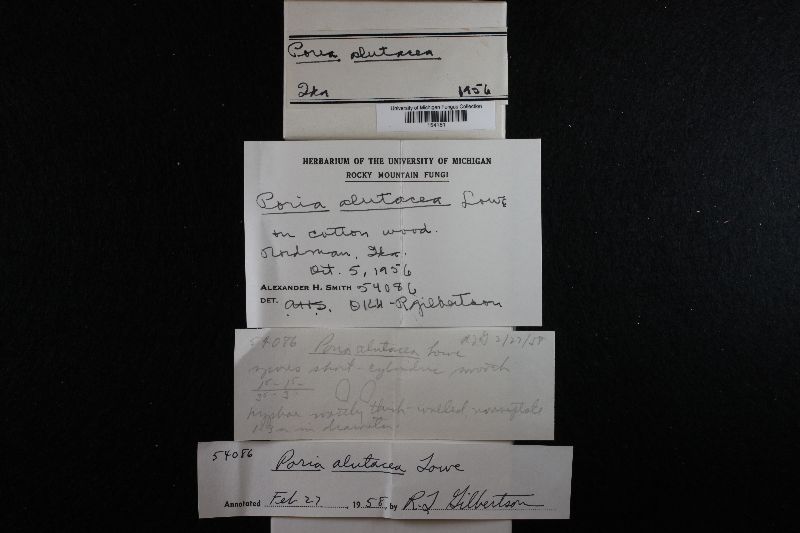 Poria alutacea
Ida 1956
University of Michigan Fungus Collection
HERBARIUM OF THE UNIVERSITY OF MICHIGAN
ROCKY MOUNTAIN FUNGI
Poria alutacea Lowe
on cotton wood.
Nordman, Ida.
Oct. 5, 1956
ALEXANDER H. SMITH 54086
DET. AHS. DKH - R Gilbertson
54086 Poria alutacea Lowe RLG 2/27/58
spores short-cylindric smooth
hyphae mostly thick-walled nonseptate
in diameter
54086 Poria alutacea Lowe
Annotated Feb 27, 1958, by R. L Gilbertson